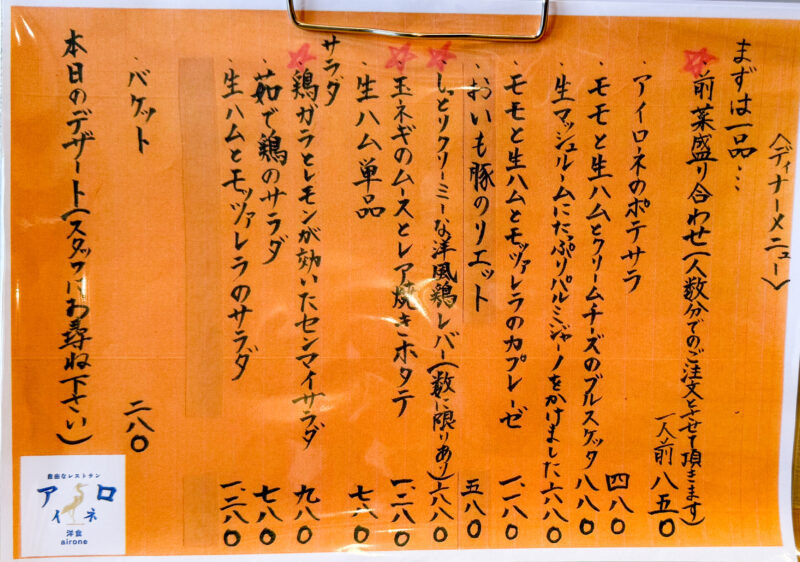 〈ディナーメニュー〉
まずは一品…
・前菜盛り合わせ(人数分でのご注文とさせて頂きます)
一人前 八五〇
・アイロネのポテサラ 四八〇
・モモと生ハムとクリームチーズのブルスケッタ 八八〇
・生マッシュルームにたっぷりパルミジャーノをかけました 六八〇
・モモと生ハムとモッツァレラのカプレーゼ 一、一八〇
・おいも豚のリエット 五八〇
・しっとりクリーミーな洋風鶏レバー(数に限りあり) 六八〇
・玉ネギのムースとレア焼きホタテ 一、二八〇
・生ハム単品 七八〇
サラダ
・鶏ガラとレモンが効いたセンマイサラダ 九八〇
・茹で鶏のサラダ 七八〇
・生ハムとモッツァレラのサラダ 一、二八〇
・バケット 二八〇
本日のデザート(スタッフにお尋ね下さい)
自由なレストラン
アイロネ
洋食
airone